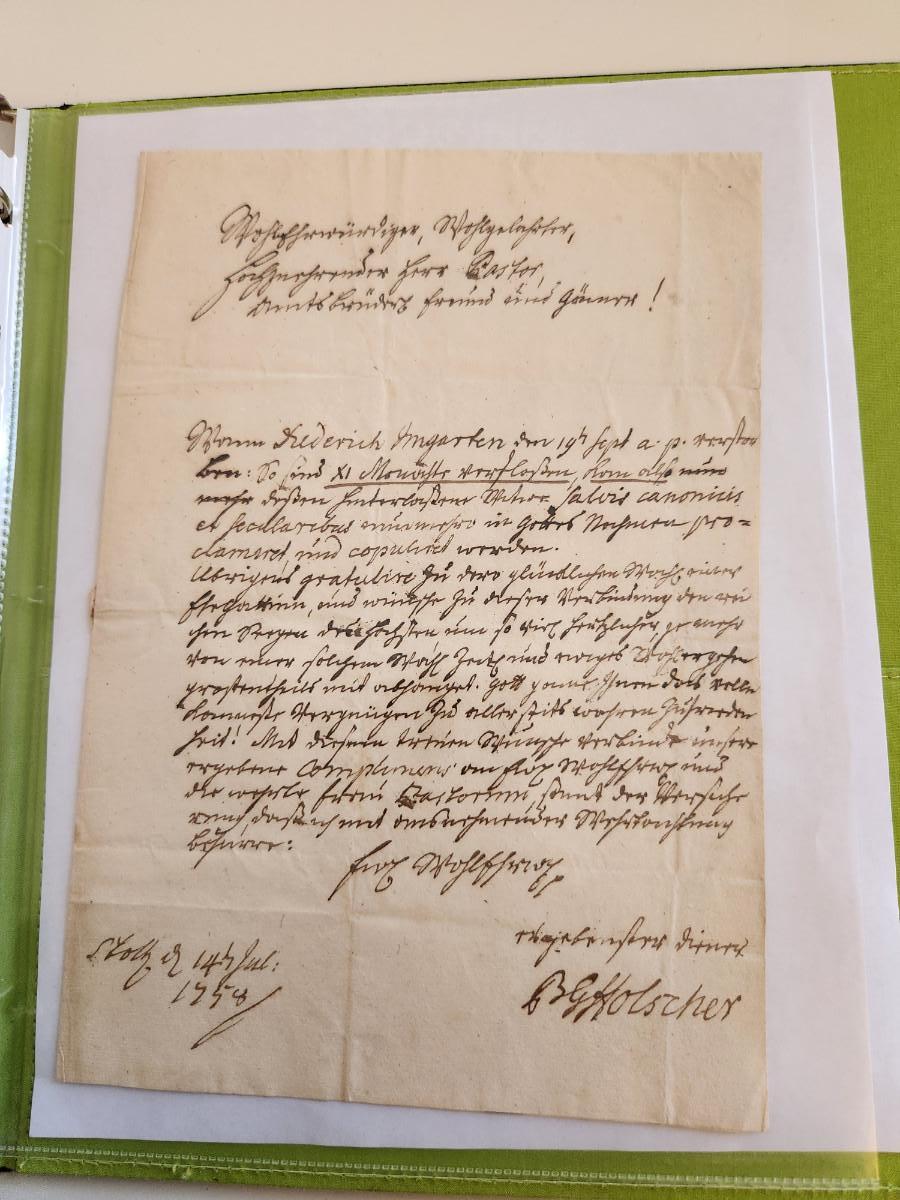 WohlEhrwürdiger, Wohlgelahrter,
Hochzuehrender Herr Pastor,
Amtsbruder, Freund und Gönner!
Wann Diederich Imgarten den 19t Sept a. p. verstor
ben: So sind XI Monahte verfloßen, kan also nun
mehr deßen hinterlaßene Witwe salvis canonicis
et secularibus nunmehro in Gottes Nahmen pro=
clamiret und copuliret werden.
Übrigens gratulire zu dero glücklichen Wahl einer
Ehegattinn, und wünsche zu dieser Verbindung den rei
chen Seegen des Höchsten um so viel hertzlicher, je mehr
von einer solchen Wahl Zeitl und ewiges Wohlergehen
grostentheils mit abhanget. Gott gönne Ihnen das volle
kommenste Vergnügen zu allerseits wahren Zufrieden
heit! Mit diesem treuen Wunsche verbinde unsere
ergebene Compliment an WohlEhrw und
die wehrte Frau Pastorinn, samt der Versiche
rung, daß ich mit ausnehmender Wehrtachtung
beharre:
WohlEhrw
ergebenster diener
BGHolscher
d 14t Jul:
1758